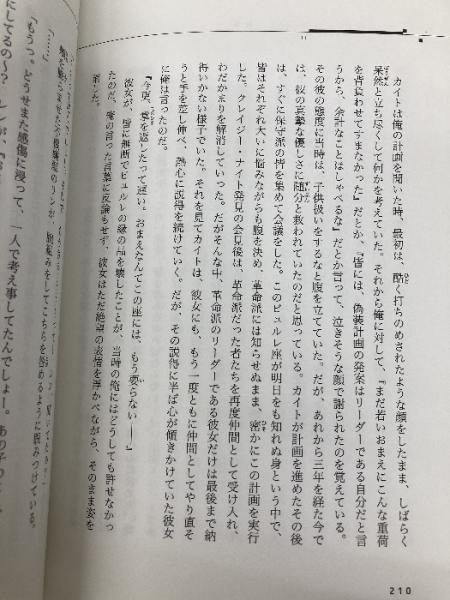 カイトは俺の計画を聞いた時、最初は、酷く打ちのめされたような顔をしたまま、しばらく
呆然と立ち尽くして何かを考えていた。それから俺に対して、『まだ若いおまえにこんな重荷
を背負わせてすまなかった』だとか、『皆には、偽装計画の発案はリーダーである自分だと言
うから、余計なことはしゃべるな』だとか言って、泣きそうな顔で謝られたのを覚えている。
その彼の態度に当時は、子供扱いをするなと腹を立てていた。だが、あれから三年を経た今で
は、彼の真摯な優しさに随分と救われていたのだと思っている。カイトが計画を進めたその後
は、すぐに保守派の皆を集めて会議をした。このビュルレ座が明日をも知れぬ身という中で、
皆はそれぞれ大いに悩みながらも腹を決め、革命派には知らせぬまま、密かにこの計画を実行
した。クレイジー・ナイト発見の会見後は、革命派だった者たちを再度仲間として受け入れ、
わだかまりを解消していった。だがそんな中、革命派のリーダーである彼女だけは最後まで納
得いかない様子でいた。それを見てカイトは、彼女にも、もう一度ともに仲間としてやり直そ
うと手を差し伸べ、熱心に説得を続けていく。だが、その説得に半ば心が傾きかけていた彼女
に俺は言ったのだ。
『今更、掌を返したって遅い。おまえなんてこの座には、もう要らない――』
彼女が、皆に無断でビュルレの縁の品を壊したことが、当時の俺にはどうしても許せなかっ
たのだ。俺の言った言葉に反論もせず、彼女はただ絶望の表情を浮かべながら、そのまま姿を
消した。
「……」
腕組みをしてこちらを咎めるように睨みつけている。
「もうっ。どうせまた感傷に浸って、一人で考え事してたんでしょー。
210